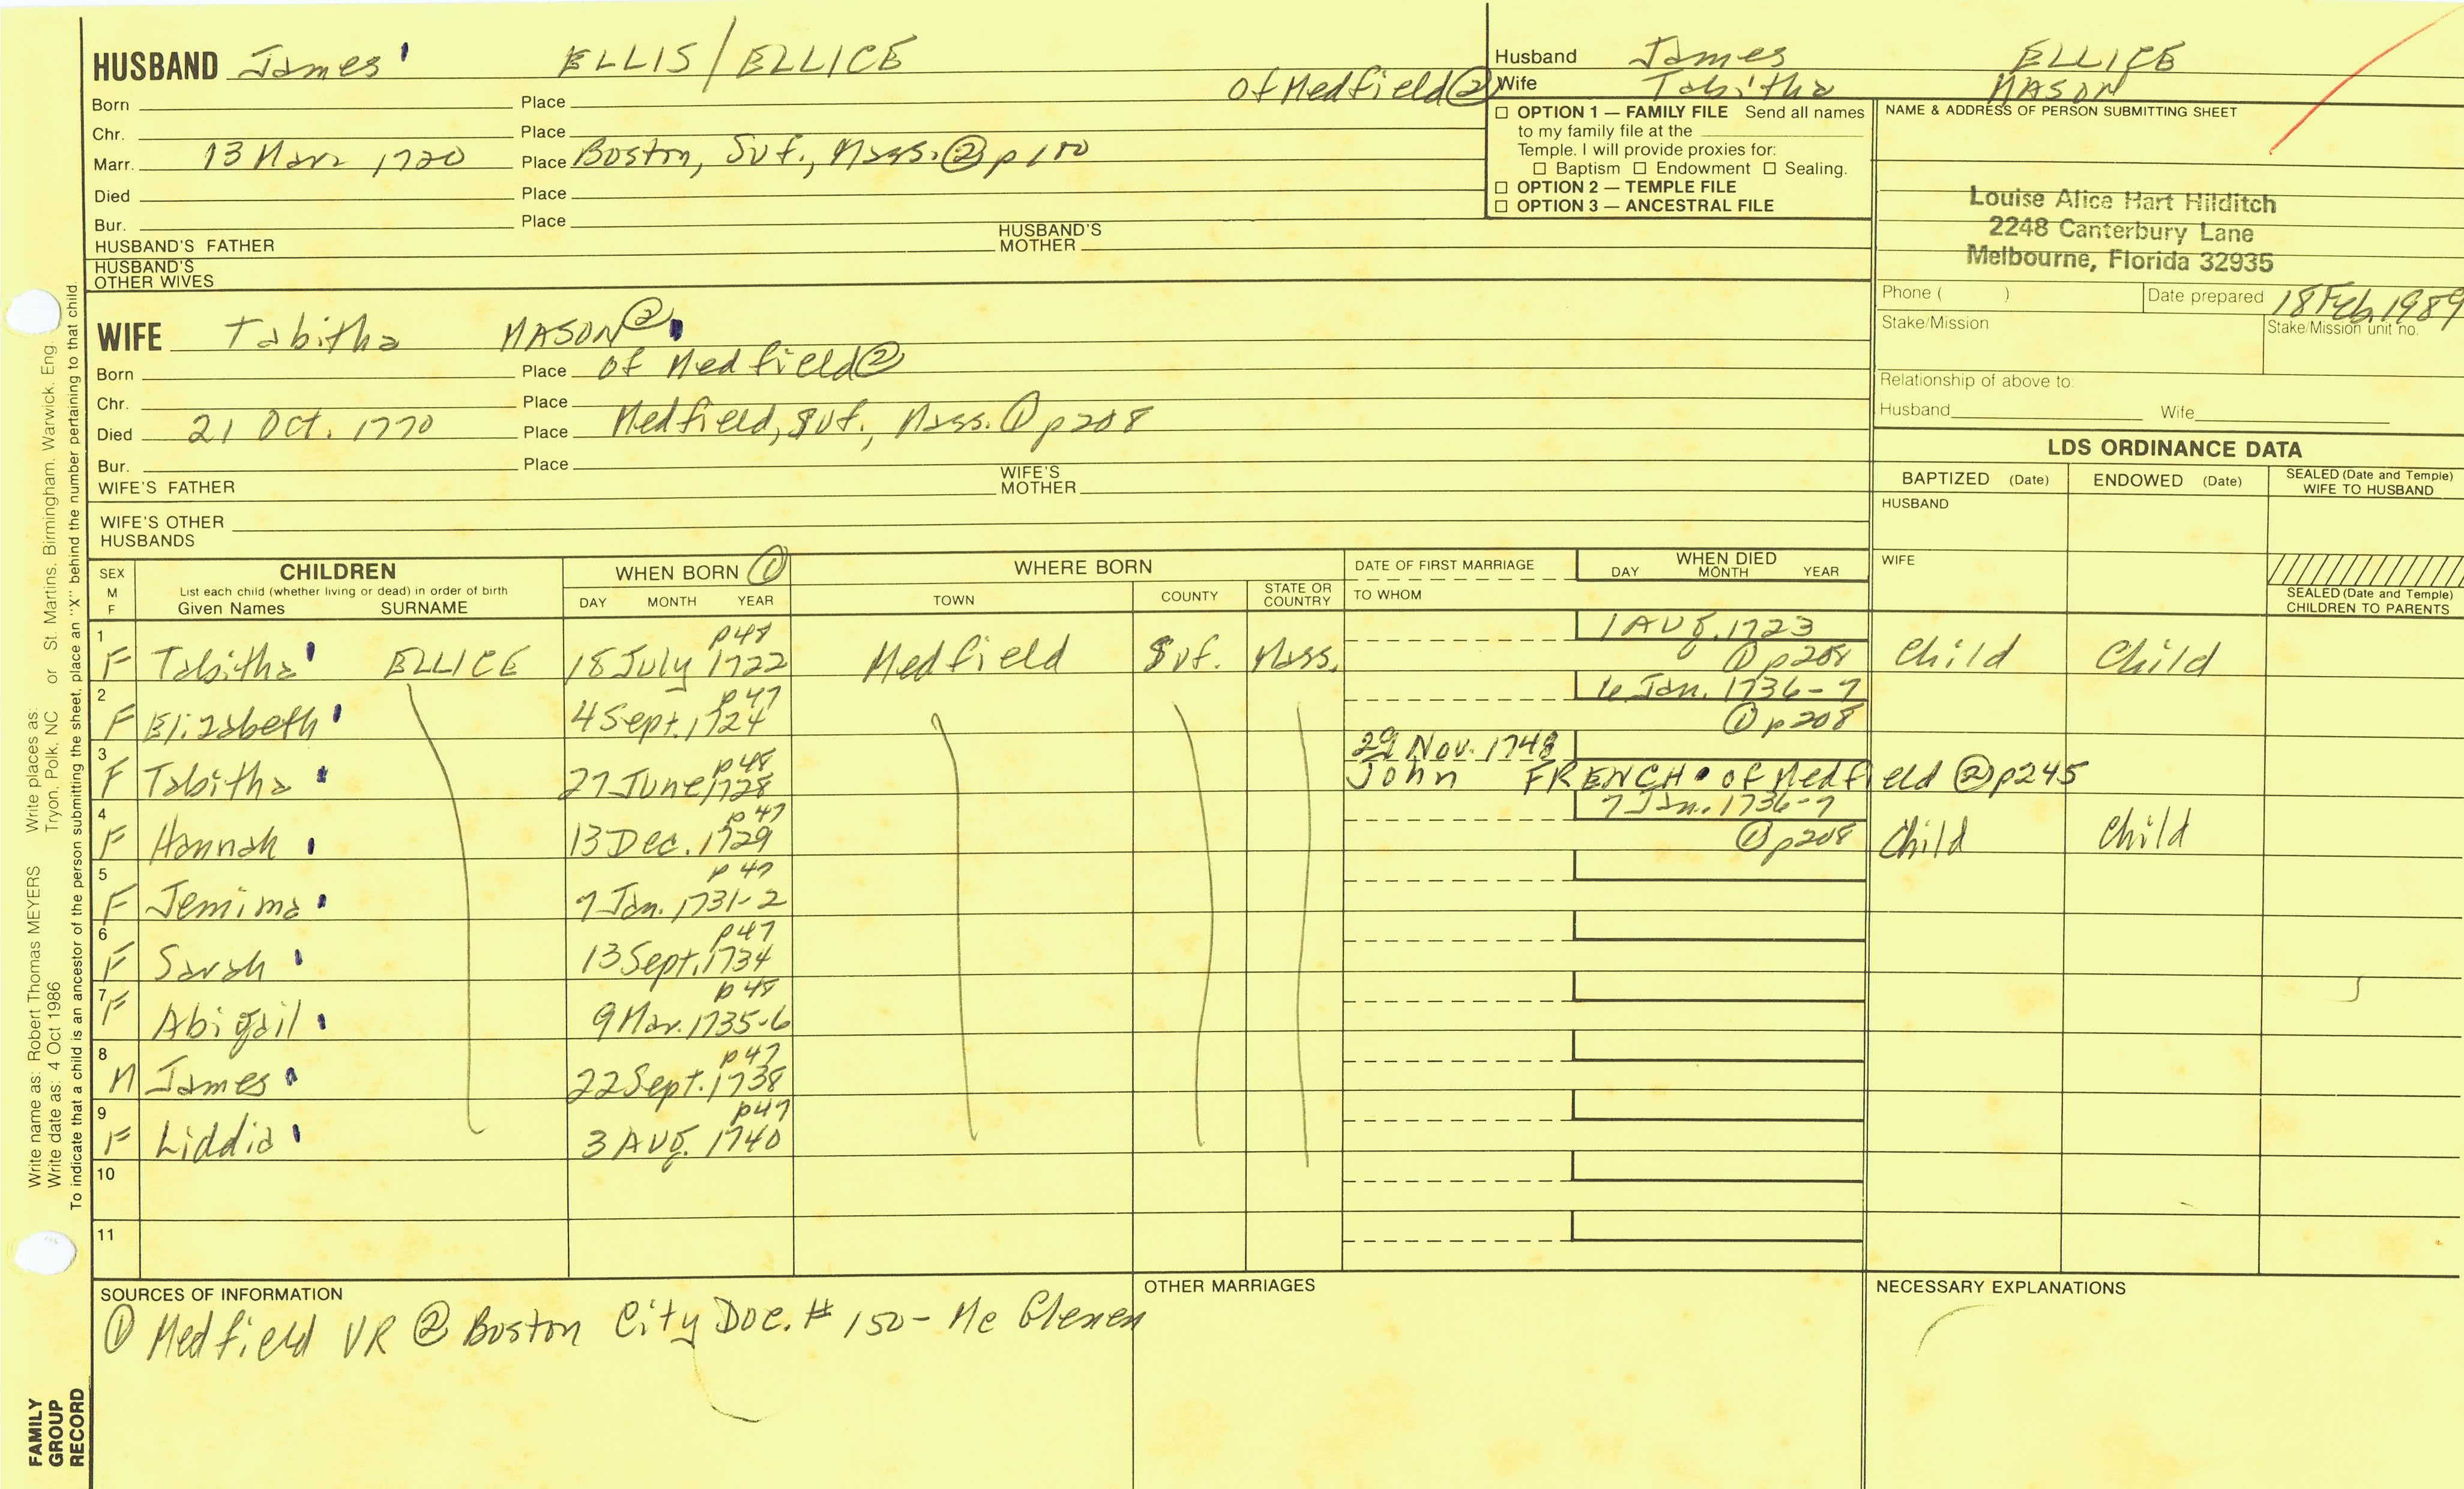 HUSBAND James ELLIS/ELLICE
of Medfield ②
Born Place
Chr. Place
Marr. 13 Mar. 1720 Place Boston, Suf., Mass. ② p100
Died Place
Bur. Place
HUSBAND'S FATHER HUSBAND'S MOTHER
HUSBAND'S OTHER WIVES
WIFE Tabitha MASON ②
Born Place of Medfield ②
Chr. Place
Died 21 Oct. 1770 Place Medfield, Suf., Mass. ① p208
Bur. Place
WIFE'S FATHER WIFE'S MOTHER
WIFE'S OTHER HUSBANDS
Husband James ELLICE
Wife Tabitha MASON
☐ OPTION 1 — FAMILY FILE Send all names
to my family file at the
Temple. I will provide proxies for:
☐ Baptism ☐ Endowment ☐ Sealing.
☐ OPTION 2 — TEMPLE FILE
☐ OPTION 3 — ANCESTRAL FILE
NAME & ADDRESS OF PERSON SUBMITTING SHEET
Louise Alice Hart Hilditch
2248 Canterbury Lane
Melbourne, Florida 32935
Phone ( ) Date prepared 18 Feb. 1989
Stake/Mission Stake/Mission unit no.
Relationship of above to:
Husband Wife
LDS ORDINANCE DATA
BAPTIZED (Date) ENDOWED (Date) SEALED (Date and Temple) WIFE TO HUSBAND
HUSBAND
WIFE
SEALED (Date and Temple) CHILDREN TO PARENTS
SEX M F CHILDREN WHEN BORN ① WHERE BORN DATE OF FIRST MARRIAGE WHEN DIED
List each child (whether living or dead) in order of birth
Given Names SURNAME DAY MONTH YEAR TOWN COUNTY STATE OR COUNTRY TO WHOM DAY MONTH YEAR
1 p48 1 Aug. 1723
F Tabitha ELLICE 18 July 1722 Medfield Suf. Mass. ① p208 Child Child
2 p47 6 Jan. 1736-7
F Elizabeth 4 Sept. 1724 ① p208
3 p48 29 Nov. 1748
F Tabitha 27 June 1728 John FRENCH of Medfield ② p245
4 p47 7 Jan. 1736-7
F Hannah 13 Dec. 1729 ① p208 Child Child
5 p47
F Jemima 7 Jan. 1731-2
6 p47
F Sarah 13 Sept. 1734
7 p47
F Abigail 9 Mar. 1735-6
8 p47
M James 22 Sept. 1738
9 p47
F Liddia 3 Aug. 1740
10
11
SOURCES OF INFORMATION OTHER MARRIAGES NECESSARY EXPLANATIONS
① Medfield VR ② Boston City Doc. # 150 - Mc Glenen
Write name as: Robert Thomas MEYERS Write places as: St. Martins, Birmingham, Warwick, Eng.
Write date as: 4 Oct 1986 Tryon, Polk, NC or
To indicate that a child is an ancestor of the person submitting the sheet, place an "X" behind the number pertaining to that child.
FAMILY
GROUP
RECORD